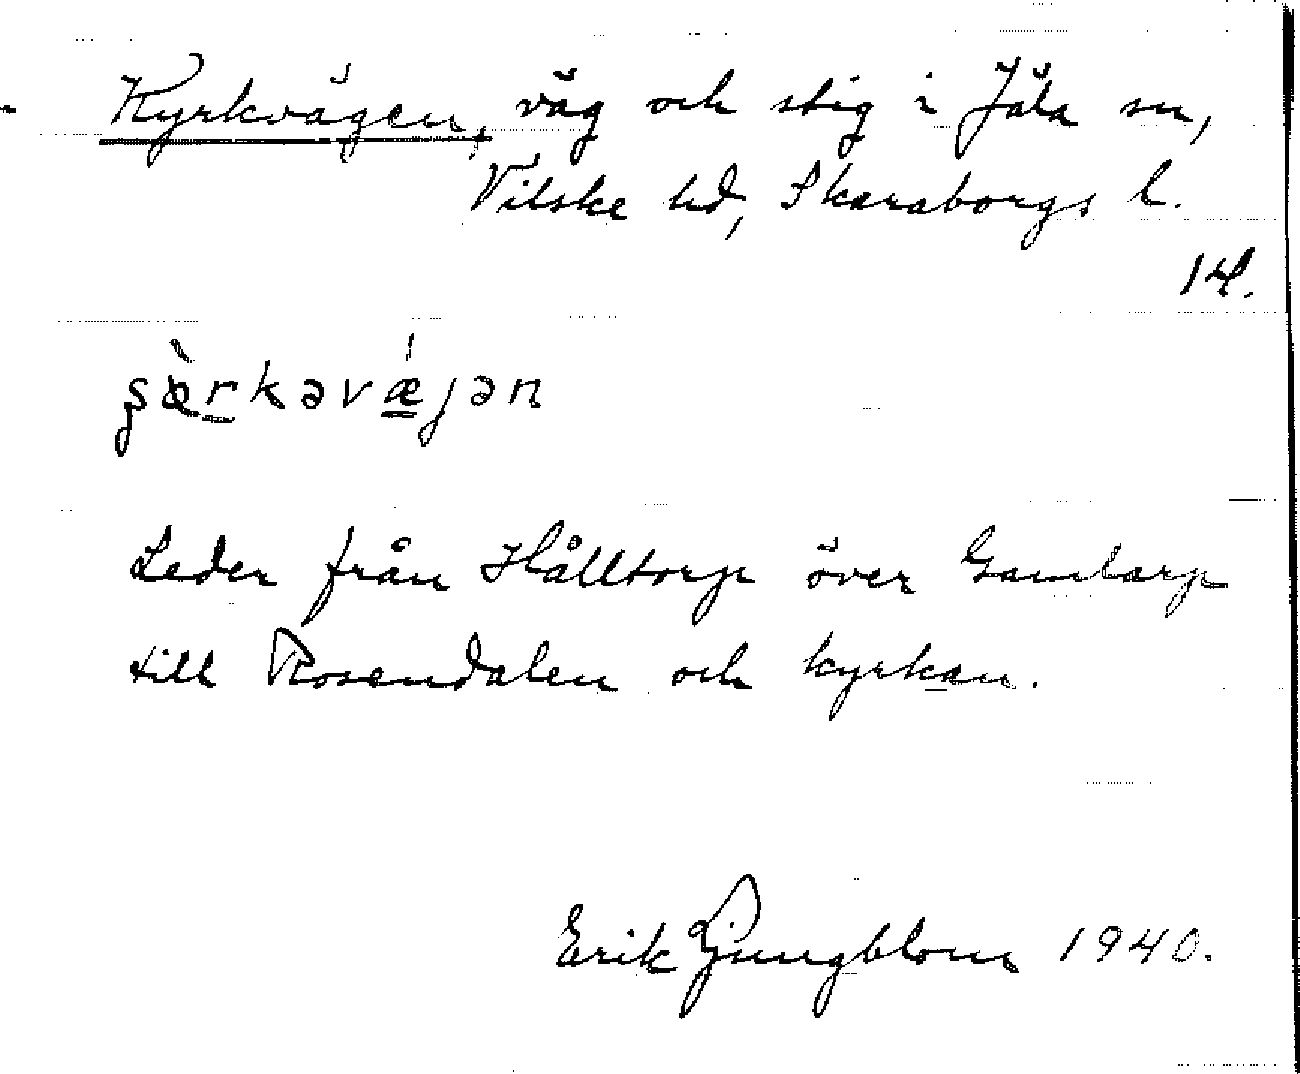 Kyrkvägen, väg och stig i Jäla sn,
Vilske hd, Skaraborgs l.
14.
Leder från Hålltorp över Gamlarp
till Rosendalen och kyrkan.
Erik Ljungblom 1940.